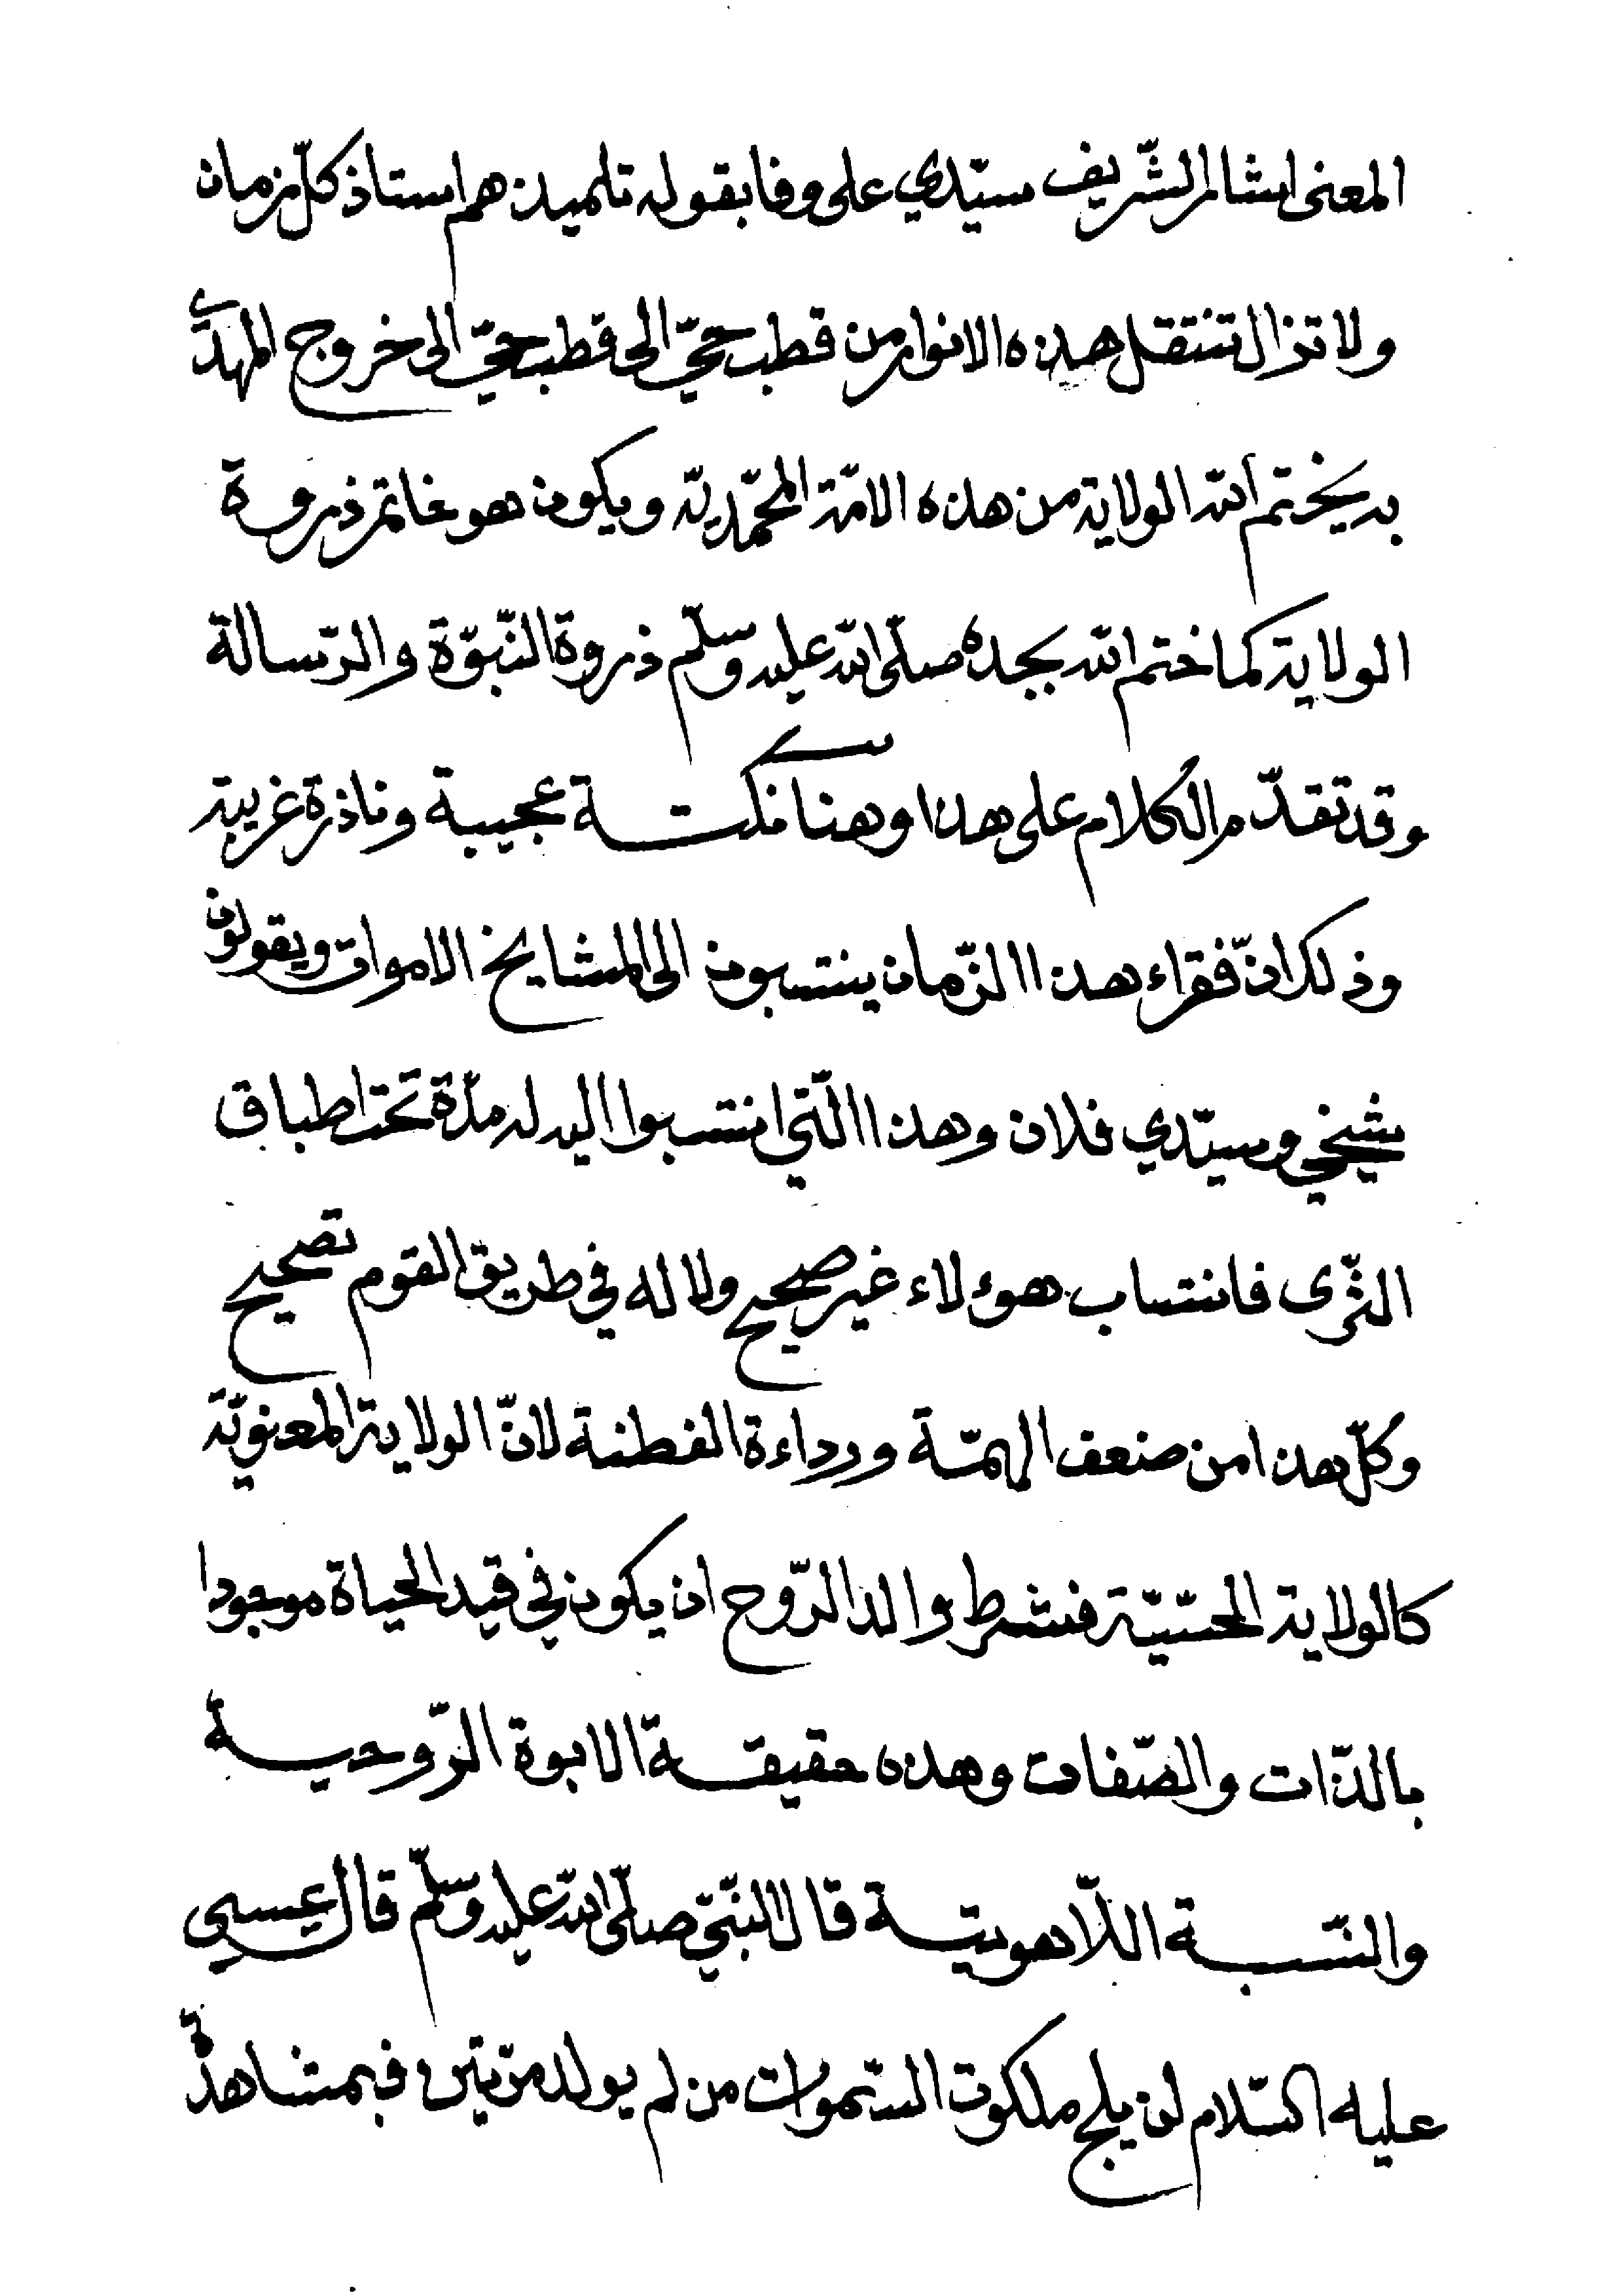 المعنى اشار الشّريف سيّدي على وفا بقوله تلميذهم استاذ كلّ زمان
ولا تزال تنتقل هذه الانوار من قطب حيّ الى قطب حيّ الى خروج المهديّ
به يختم الله الولاية من هذه الامّة المحمّديّة ويكون هو خاتم ذروة
الولاية كما ختم الله بجده صلّى الله عليه وسلّم ذروة النّبوّة والرّسالة
وقد تقدّم الكلام على هذا وهنا نكتة عجيبة وناذرة غريبة
وذلك انّ فقراء هذا الزّمان ينتسبون الى المشايخ الاموات ويقولون
شيخي وسيّدي فلان وهذا الّتي انتسبوا اليه له مدّة تحت اطباق
الثّرى فانتساب هؤلاء غير صحيح ولا له في طريق القوم تصحيح
وكلّ هذا من ضعف الهمّة ورداءة الفطنة لانّ الولاية المعنويّة
كالولاية الحسّيّة فشرط والد الرّوح ان يكون في قيد الحياة موجودا
بالذّات والصّفات وهذه حقيقة الابوة الرّوحية
والنّسبة اللّاهوتية قال النّبيّ صلّى الله عليه وسلّم قال عيسى
عليه السّلام لن يلج ملكوت السّموات من لم يولد مرّتين فبمشاهدة